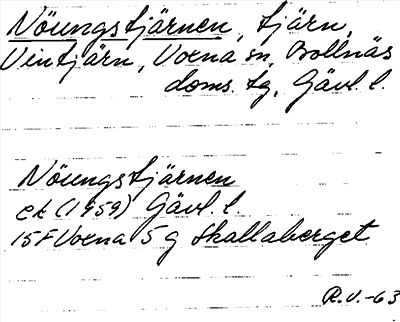 Nöungstjärnen, tjärn,
Vintjärn, Voxna sn, Bollnäs
doms. tg, Gävl. l.
Nöungstjärnen
ek (1959) Gävl. l.
15F Voxna 5 g Skallaberget
R.V.-63